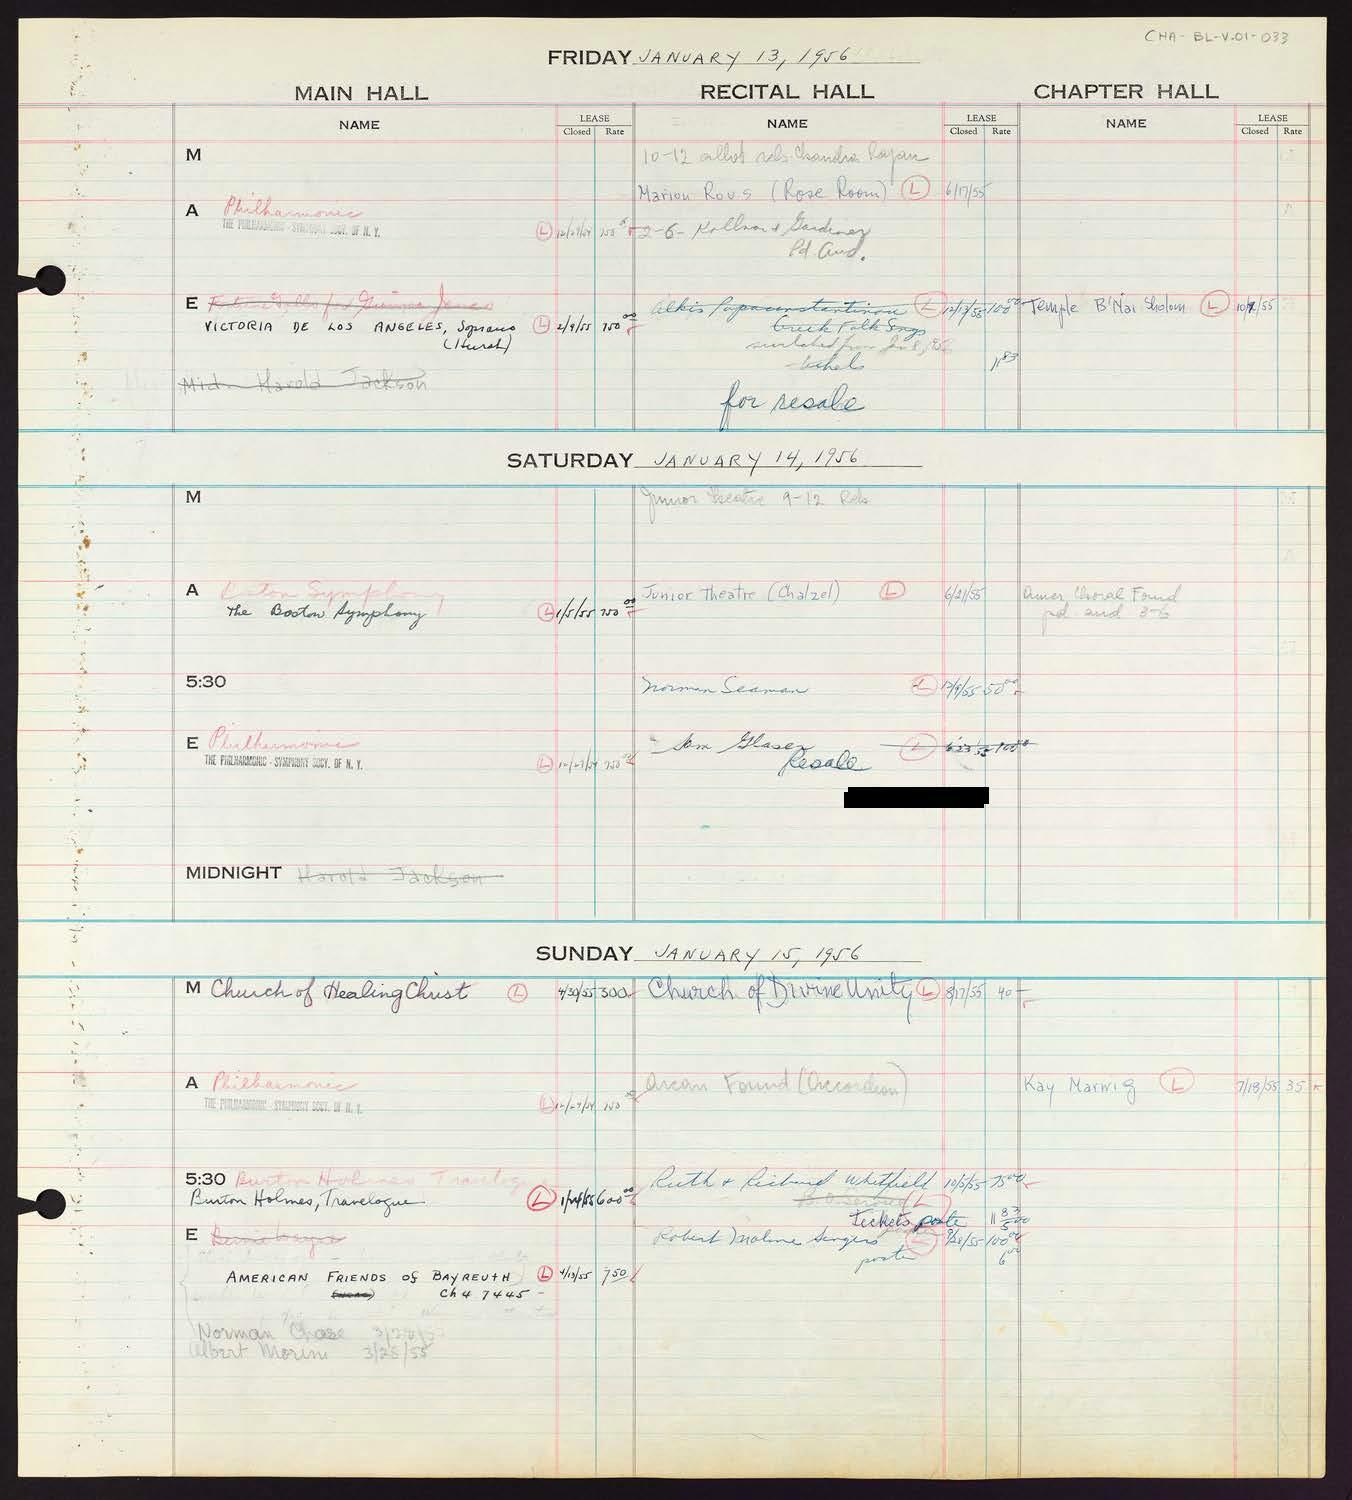 CHA-BL-V.01-033
FRIDAY JANUARY 13, 1956
MAIN HALL RECITAL HALL CHAPTER HALL
NAME LEASE Closed Rate NAME LEASE Closed Rate NAME LEASE Closed Rate
M 10-12 rels Chandra Rajan
Marion Rous (Rose Room) L 6/17/55
A Philharmonic
THE PHILHARMONIC-SYMPHONY SOCY. OF N. Y. L 12/27/54 750 2-6- & Gardiner
Pd Aud.
E Alkis Papaconstantinou L 100 Temple B'Nai Sholom L
VICTORIA DE LOS ANGELES, Soprano L 2/9/55 750 00 Greek Folk Songs
(Hurok) switched from
tickets 11 83
Mid. Harold Jackson
for resale
SATURDAY JANUARY 14, 1956
M Junior Theatre 9-12 Rels
A Boston Symphony Junior Theatre (Chalzel) L 6/21/55 Amer Choral Found
The Boston Symphony L 1/5/55 750 00 pd aud 3-6
5:30 Norman Seaman L 12/9/55 50 00
E Philharmonic Sam Glaser L 100
THE PHILHARMONIC-SYMPHONY SOCY. OF N. Y. L 12/27/54 750 Resale
MIDNIGHT Harold Jackson
SUNDAY JANUARY 15, 1956
M Church of Healing Christ L 4/30/55 300 Church of Divine Unity L 8/17/55 40-
A Philharmonic Found (Accordion) Kay Marwig L 7/18/55 35
THE PHILHARMONIC-SYMPHONY SOCY. OF N. Y. L 12/27/54 750
5:30 Burton Holmes Travelogue Ruth & Richard Whitfield 10/5/55 75 00
Burton Holmes, Travelogue L 1/24/55 600 00 L
Tickets poste 11 83
E Robert Malone Singers L 100
poste 6
AMERICAN FRIENDS OF BAYREUTH L 4/13/55 750
CH4 7445
Norman Chase
Albert Morini 3/28/55